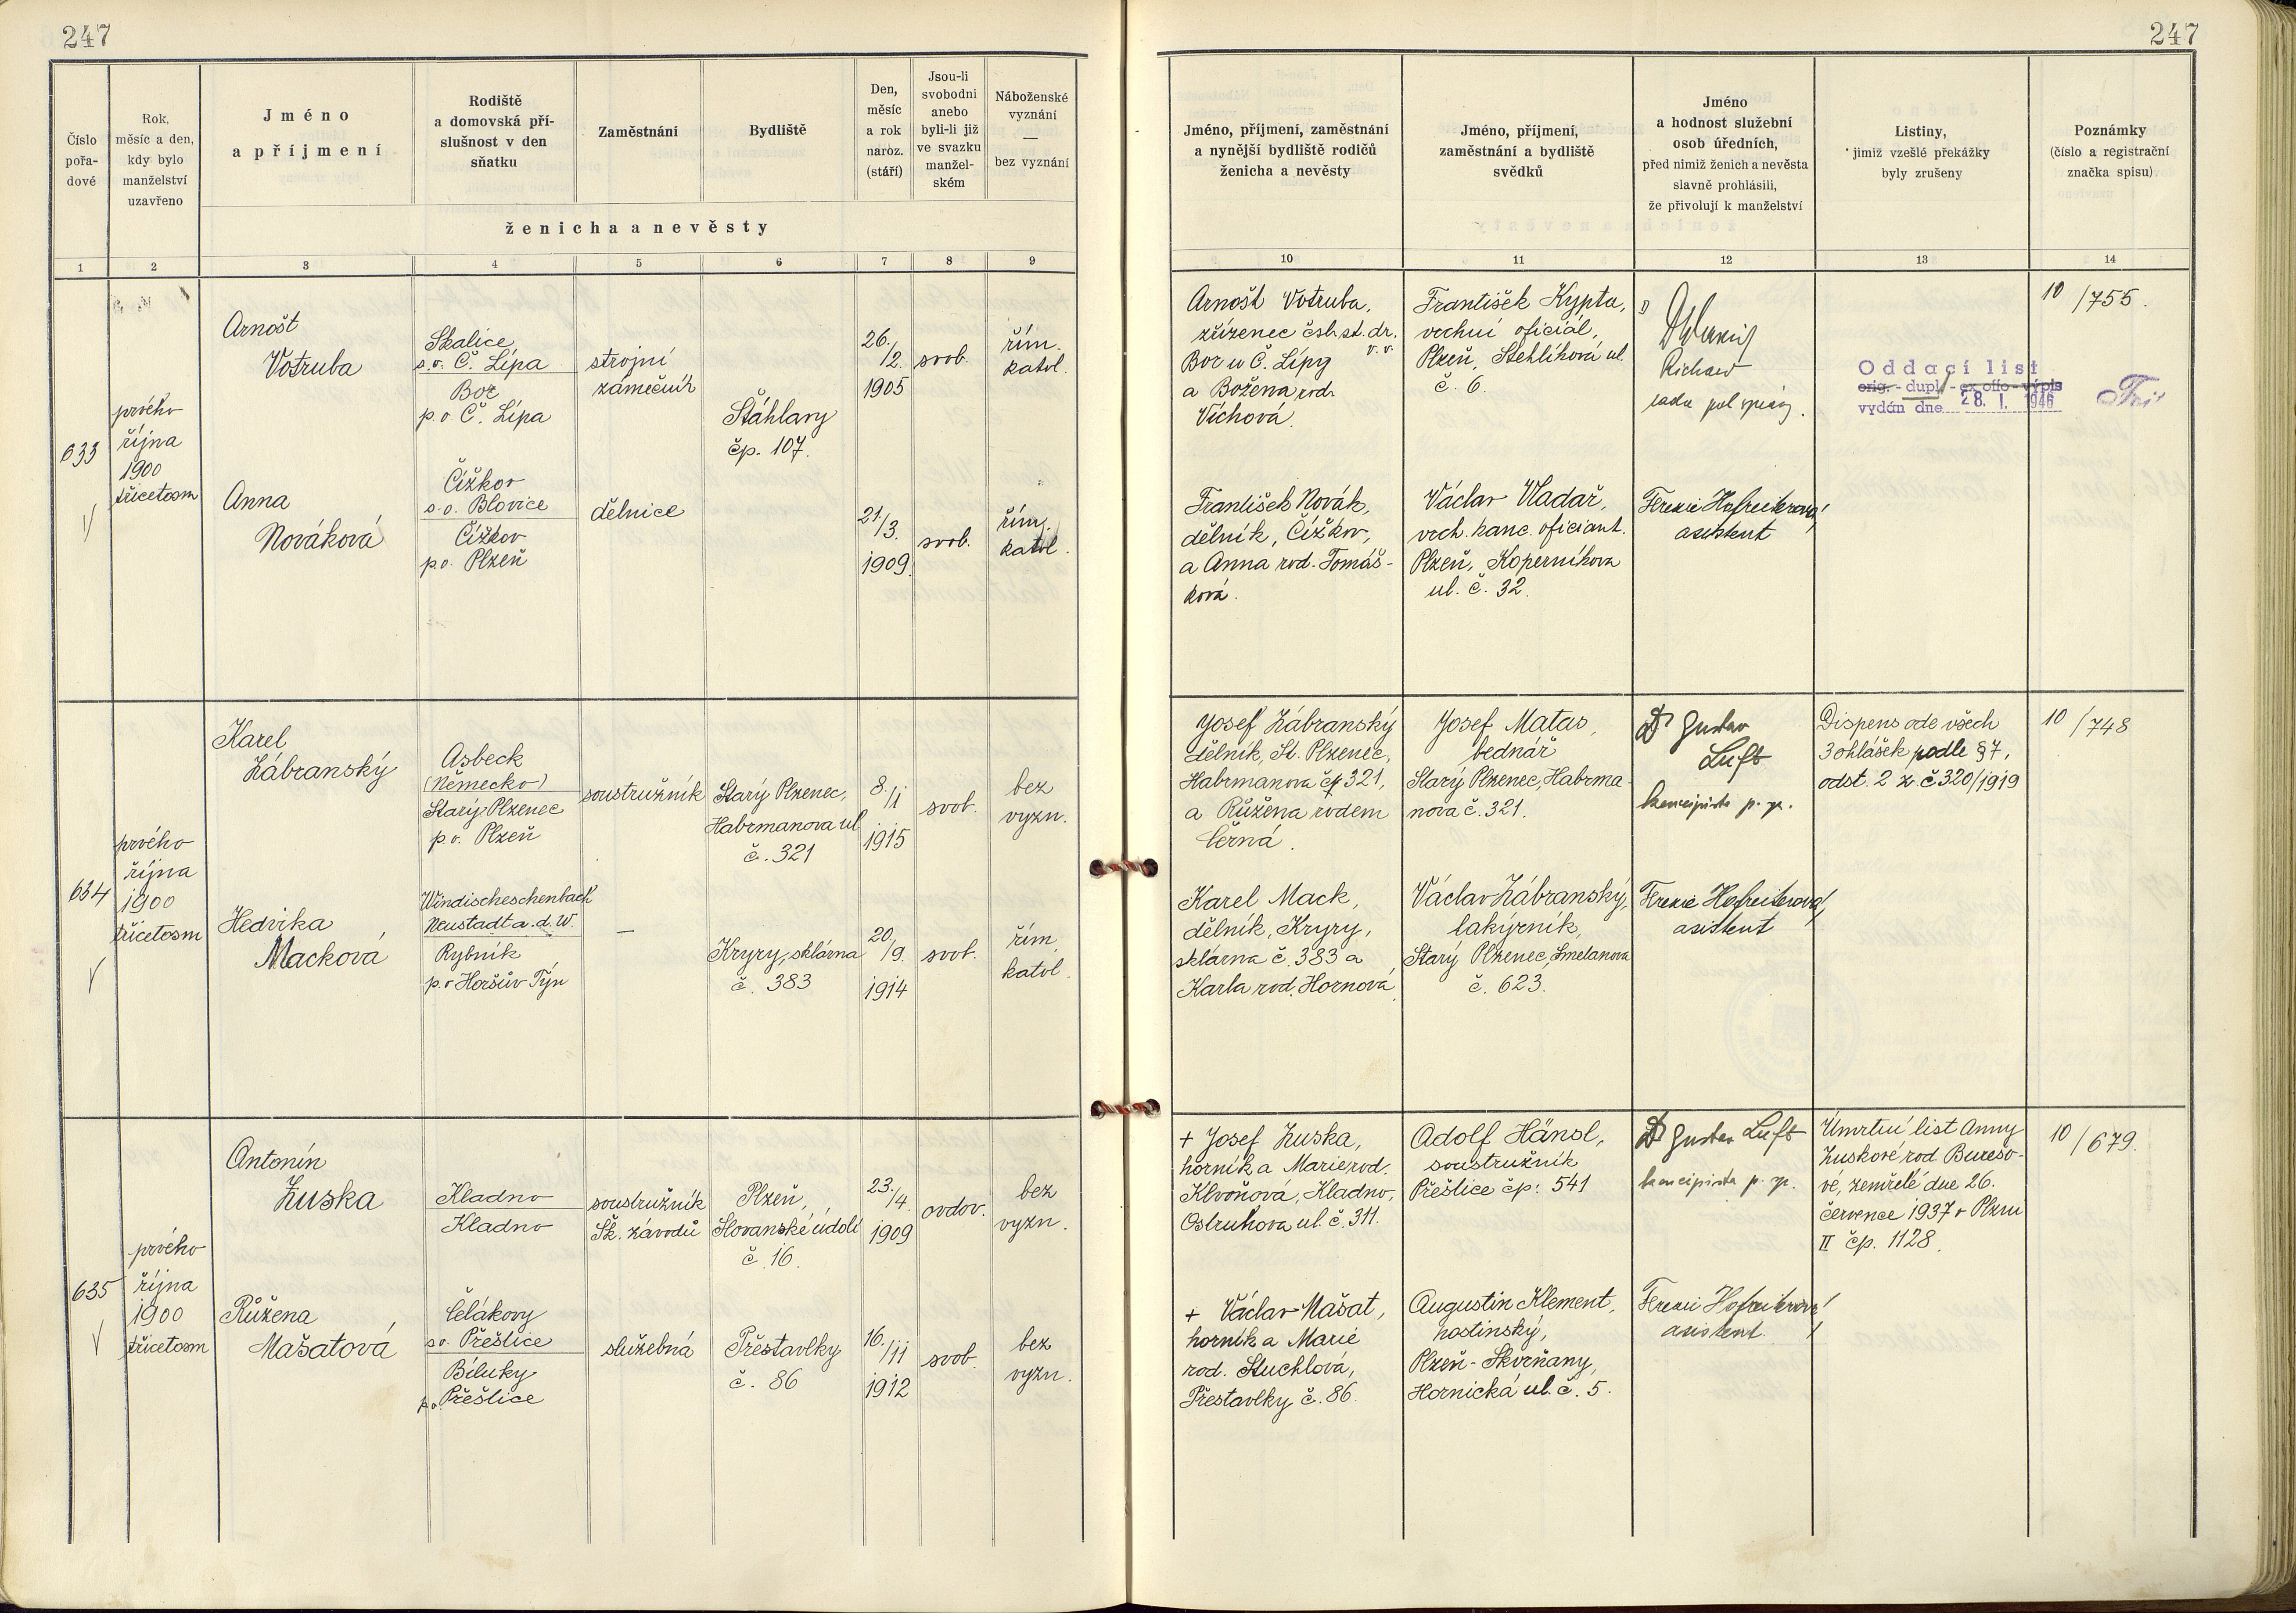 247
247
Číslo
pořa-
dové
Rok,
měsíc a den,
kdy bylo
manželství
uzavřeno
Jméno
a příjmení
Rodiště
a domovská pří-
slušnost v den
sňatku
Zaměstnání
Bydliště
Den,
měsíc
a rok
naroz.
(stáří)
Jsou-li
svobodni
anebo
byli-li již
ve svazku
manžel-
ském
Náboženské
vyznání
—
bez vyznání
ženicha a nevěsty
Jméno, příjmení, zaměstnání
a nynější bydliště rodičů
ženicha a nevěsty
Jméno, příjmení,
zaměstnání a bydliště
svědků
Jméno
a hodnost služební
osob úředních,
před nimiž ženich a nevěsta
slavně prohlásili,
že přivolují k manželství
Listiny,
jimiž vzešlé překážky
byly zrušeny
Poznámky
(číslo a registrační
značka spisu)
1 2 3 4 5 6 7 8 9 10 11 12 13 14
633
prvého
října
1900
třicetosm
Arnošt
Votruba
Skalice,
s.o. Č. Lípa
Bor
p.o. Č. Lípa
strojní
zámečník
Štáhlavy
čp. 107.
26./2.
1905
svob.
řím.
katol.
Arnošt Votruba,
zřízenec čsl. st. dr.
v.v.
Bor u Č. Lípy
a Božena rod.
Víchová.
František Kypta,
vrchní oficiál,
Plzeň, Stehlíkova ul.
č. 6.
Oddací list
orig. - dupl. - ex offo - výpis
vydán dne 28. I. 1946
10/755.
Anna
Nováková
Čížkov
s.o. Blovice
Čížkov
p.o. Plzeň
dělnice
21/3.
1909.
svob.
řím.
katol.
František Novák,
dělník, Čížkov,
a Anna rod. Tomáš-
ková.
Václav Vladař,
vrch. kanc. oficiant.
Plzeň, Koperníkova
ul. č. 32.
asistent
634
prvého
října
1900
třicetosm
Karel
Zábranský
Asbeck
(Německo)
Starý Plzenec
p.o. Plzeň
soustružník
Starý Plzenec,
Habrmanova ul
č. 321
8./1
1915
svob.
bez
vyzn.
Josef Zábranský
dělník, St. Plzenec,
Habrmanova čp 321,
a Růžena rodem
Černá.
Josef Matas,
bednář
Starý Plzenec, Habrma-
nova č. 321.
Dr Gustav
Luft
koncipista p. sp.
Dispens ode všech
3 ohlášek podle § 7,
odst. 2 z. č 320/1919
10/748
Hedvika
Macková
Windischeschenbach
Neustadt a. d. W.
Rybník
p.o Horšův Týn
—
Kryry, sklárna
č. 383
20/9.
1914
svob.
řím.
katol.
Karel Mack,
dělník, Kryry,
sklárna č. 383 a
Karla rod. Hornová.
Václav Zábranský,
lakýrník,
Starý Plzenec, Smetanova
č. 623.
asistent
635
prvého
října
1900
třicetosm
Antonín
Zuska
Kladno
Kladno
soustružník
Šk. závodů
Plzeň,
Slovanské údolí
č. 16.
23./4.
1909
ovdov.
bez
vyzn.
+ Josef Zuska,
horník a Marie rod.
Klvoňová, Kladno,
Ostruhova ul. č. 311.
Adolf Hänsl,
soustružník
Přeštice čp: 541
Dr Gustav Luft
koncipista p. sp.
Úmrtní list Anny
Zuskové rod Burešo-
vé, zemřelé dne 26.
července 1937 v Plzni
II čp. 1128.
10/679.
Růžena
Mašatová
Čelákovy
s.o. Přeštice
Biluky
p.o. Přeštice
služebná
Přestavlky
č. 86
16./11
1912
svob.
bez
vyzn.
+ Václav Mašat,
horník a Marie
rod. Stuchlová,
Přestavlky č. 86.
Augustin Klement,
hostinský,
Plzeň - Skvrňany,
Hornická ul. č. 5.
asistent.